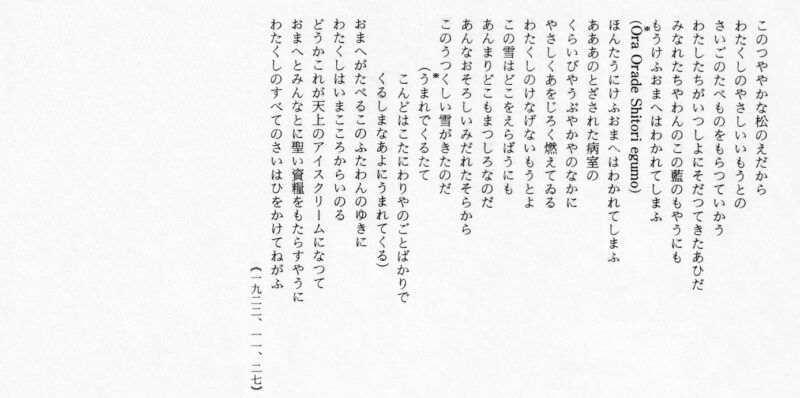 このつややかな松のえだから
わたくしのやさしいいもうとの
さいごのたべものをもらつていかう
わたしたちがいつしよにそだつてきたあひだ
みなれたちやわんのこの藍のもやうにも
もうけふおまへはわかれてしまふ
*
(Ora Orade Shitori egumo)
ほんたうにけふおまへはわかれてしまふ
あああのとざされた病室の
くらいびやうぶやかやのなかに
やさしくあをじろく燃えてゐる
わたくしのけなげないもうとよ
この雪はどこをえらばうにも
あんまりどこもまつしろなのだ
あんなおそろしいみだれたそらから
このうつくしい雪がきたのだ
*
(うまれでくるたて
こんどはこたにわりやのごとばかりで
くるしまなあよにうまれてくる)
おまへがたべるこのふたわんのゆきに
わたくしはいまこころからいのる
どうかこれが天上のアイスクリームになつて
おまへとみんなとに聖い資糧をもたらすやうに
わたくしのすべてのさいはひをかけてねがふ
(一九二二、一一、二七)